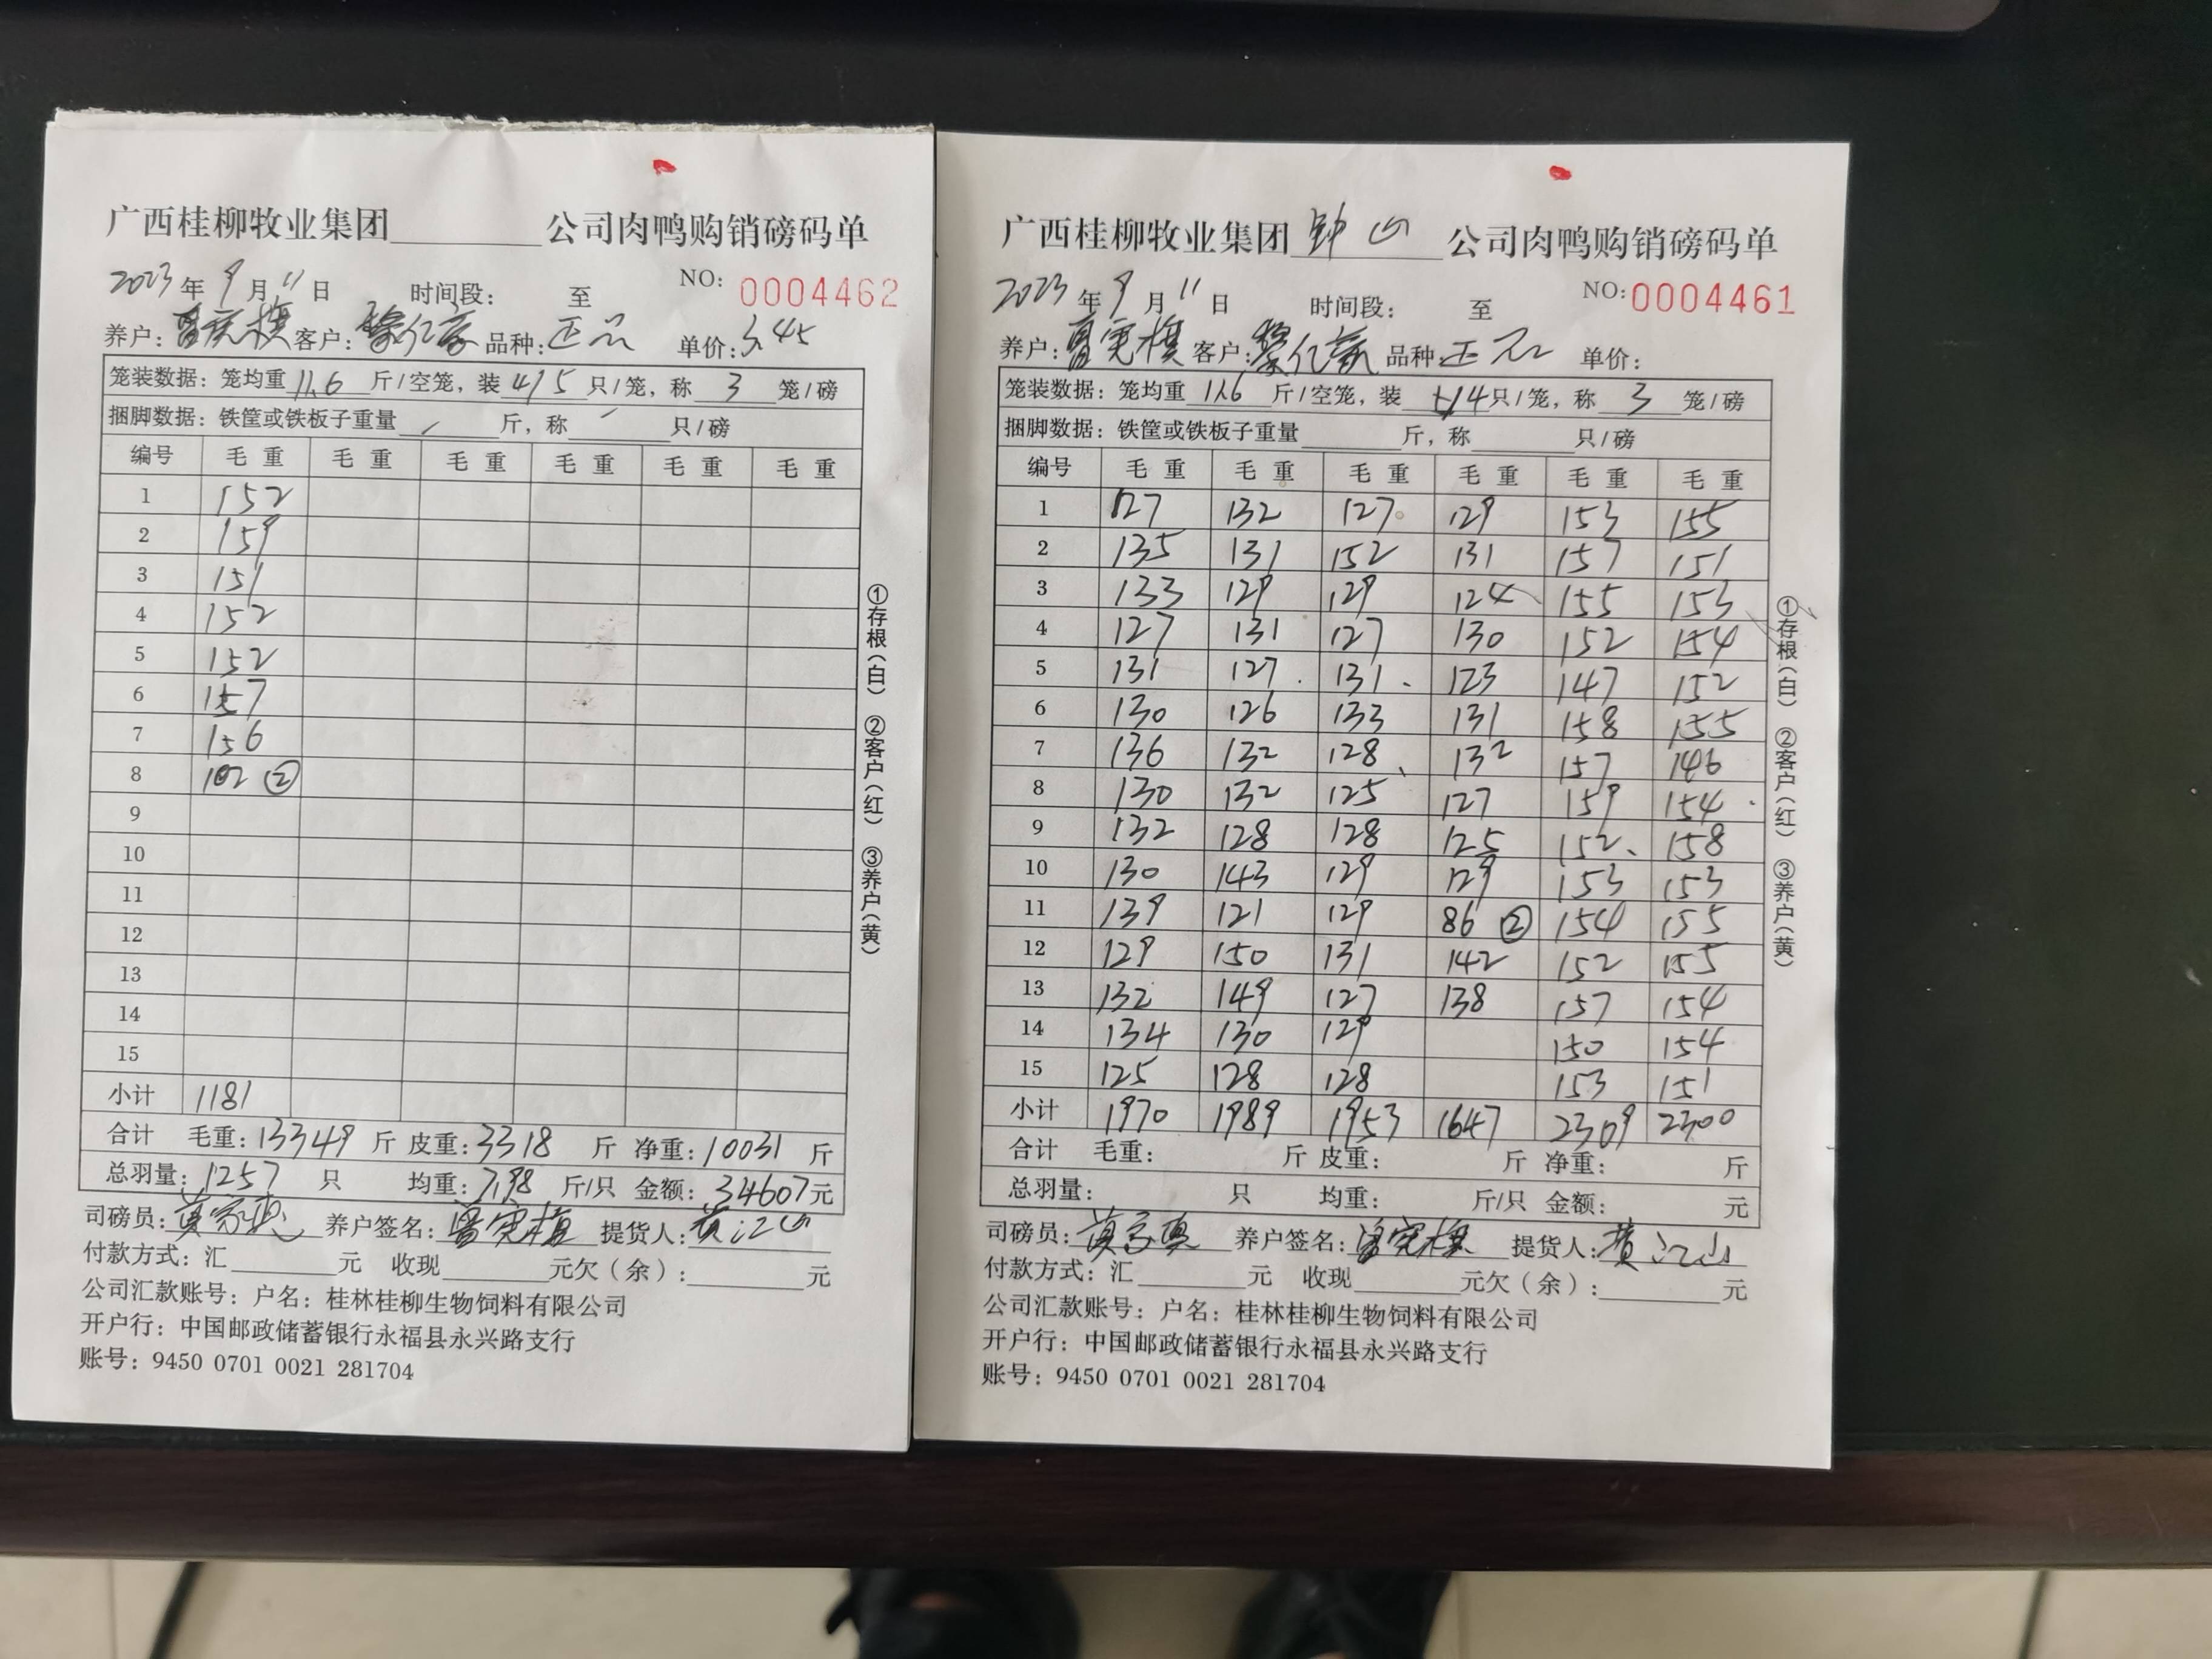 广西桂柳牧业集团________公司肉鸭购销磅码单
2023年9月11日 时间段： 至 NO：0004462
养户：曾宪模 客户：黎亿豪 品种：正品 单价：3.45
笼装数据：笼均重11.6斤/空笼，装4/5只/笼，称3笼/磅
捆脚数据：铁筐或铁板子重量 / 斤，称 / 只/磅
编号 毛重 毛重 毛重 毛重 毛重 毛重
1 152
2 159
3 151
4 152
5 152
6 157
7 156
8 102 ②
9
10
11
12
13
14
15
小计 1181
合计 毛重：13349斤 皮重：3318斤 净重：10031斤
总羽量：1257只 均重：7.98斤/只 金额：34607元
司磅员： 养户签名：曾宪模 提货人：黄江山
付款方式：汇________元 收现________元欠（余）：________元
公司汇款账号：户名：桂林桂柳生物饲料有限公司
开户行：中国邮政储蓄银行永福县永兴路支行
账号：9450 0701 0021 281704
①存根（白） ②客户（红） ③养户（黄）
广西桂柳牧业集团钟山公司肉鸭购销磅码单
2023年9月11日 时间段： 至 NO：0004461
养户：曾宪模 客户：黎亿豪 品种：正品 单价：
笼装数据：笼均重11.6斤/空笼，装4只/笼，称3笼/磅
捆脚数据：铁筐或铁板子重量________斤，称________只/磅
编号 毛重 毛重 毛重 毛重 毛重 毛重
1 127 132 127 129 153 155
2 135 131 152 131 157 151
3 133 129 129 124 155 153
4 127 131 127 130 152 154
5 131 127 131 123 147 152
6 130 126 133 131 158 155
7 136 132 128 132 157 146
8 130 132 125 127 159 154
9 132 128 128 125 152 158
10 130 143 129 129 153 153
11 139 121 129 86 ② 154 155
12 129 150 131 142 152 155
13 132 149 127 138 157 154
14 134 130 129 150 154
15 125 128 128 153 151
小计 1970 1989 1953 1647 2309 2300
合计 毛重： 斤 皮重： 斤 净重： 斤
总羽量： 只 均重： 斤/只 金额： 元
司磅员： 养户签名：曾宪模 提货人：黄江山
付款方式：汇________元 收现________元欠（余）：________元
公司汇款账号：户名：桂林桂柳生物饲料有限公司
开户行：中国邮政储蓄银行永福县永兴路支行
账号：9450 0701 0021 281704
①存根（白） ②客户（红） ③养户（黄）